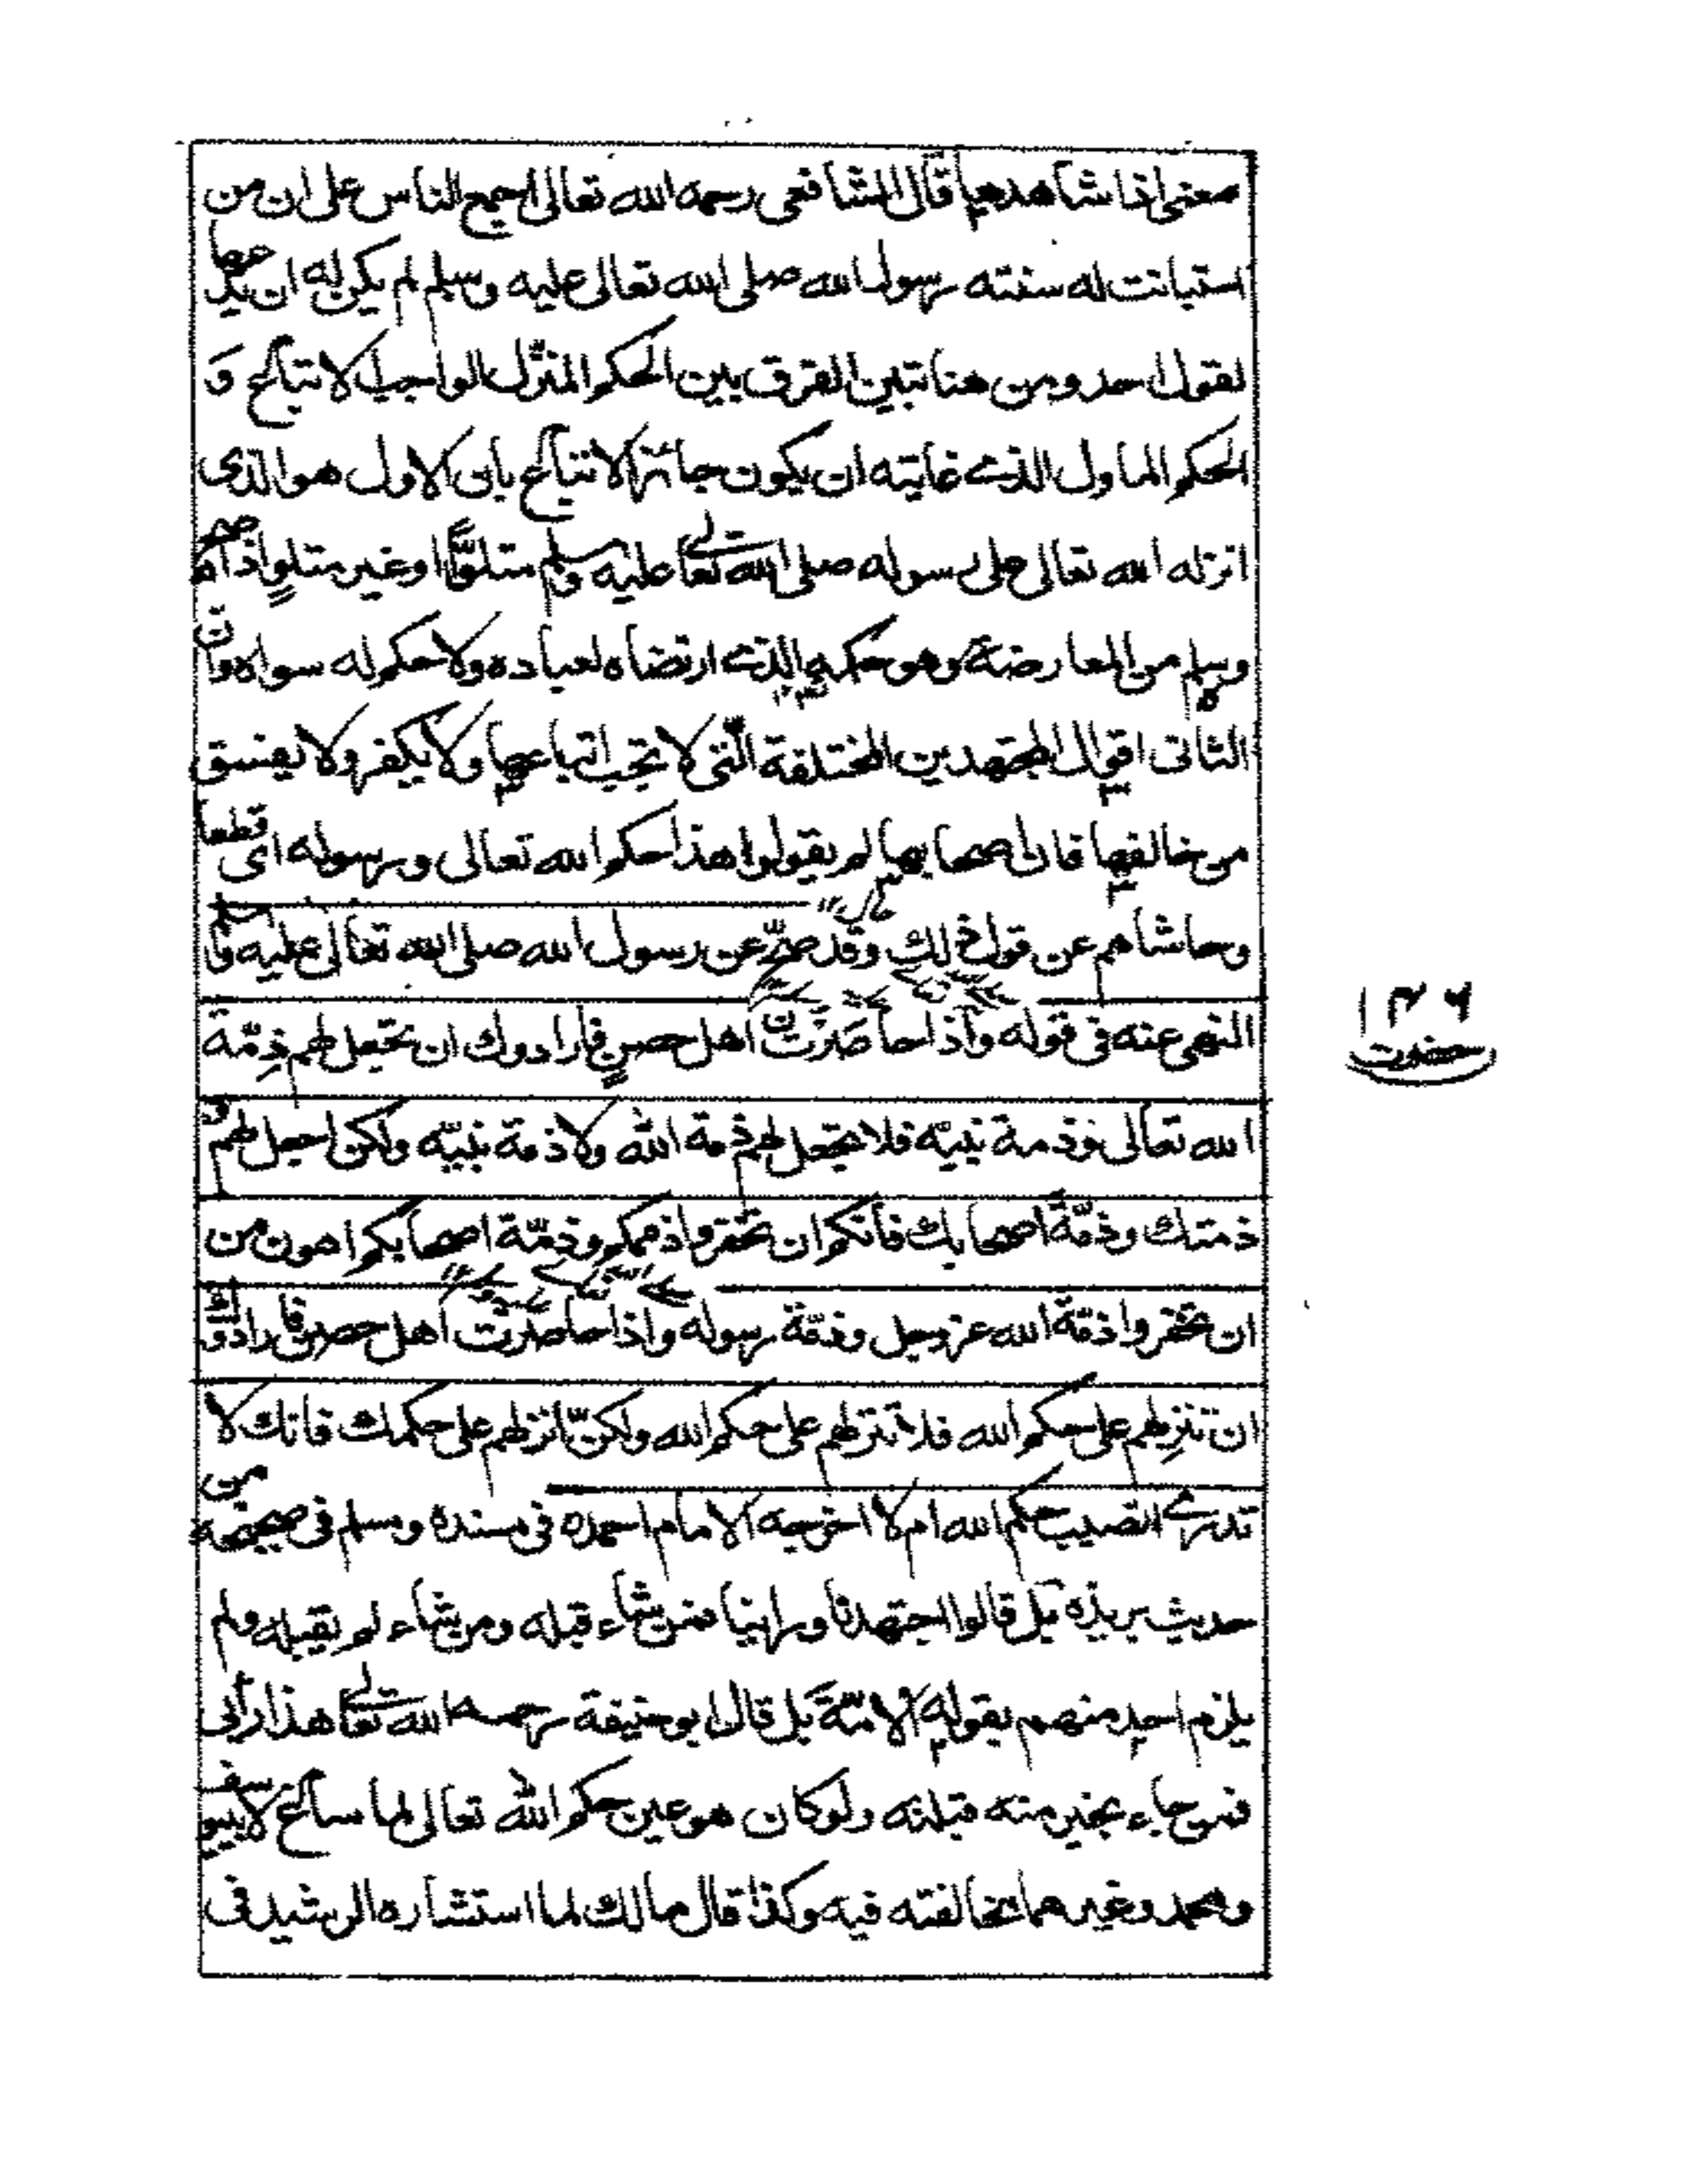 معنى اذا شاهدها قال الشافعى رحمه الله تعالى اجمع الناس على ان من
استبانت له سنته رسول الله صلى الله تعالى عليه وسلم لم يكن له ان يدعها
لقول احد ومن هنا تبين الفرق بين الحكم المنزّل الواجب الاتباع وَ
الحكم الماول الذى غايته ان يكون جائز الاتباع بان الاول هو الذى
انزله الله تعالى على رسوله صلى الله تعالى عليه وسلم متلوًّا او غير متلوٍ اذا صح
وسلم من المعارضة وهو حكمه الذى ارتضاه لعباده ولا حكم له سواه وان
الثانى اقوال المجتهدين المختلفة الّتى لا تجب اتباعها ولا يكفر ولا يفسق
من خالفها فان اصحابها لم يقولوا هذا حكم الله تعالى ورسوله اى قطعا
وحاشاهم عن قول ذلك وقد صحّ عن رسول الله صلى الله تعالى عليه وسلم
النهى عنه فى قوله واذا حاصَرْتَ اهل حصنٍ فارادوك ان تجعل لهم ذِمّة
الله تعالى وذمة نبيّه فلا تجعل لهم ذمة الله ولا ذمة نبيّه ولكن اجعل لهم
ذمتك وذمّة اصحابك فانكم ان تخفروا ذممكم وذمّة اصحابكم اهون من
ان تخفروا ذمّة الله عز وجل وذمّة رسوله واذا حاصرت اهل حصن فارادوك
ان تنزلهم على حكم الله فلا تنزلهم على حكم الله ولكنّ انزلهم على حكمك فانك لا
تدرى اتصيب حكم الله ام لا اخرجه الامام احمد فى مسنده ومسلم فى صحيحه من
حديث بريدة بل قالوا اجتهدنا وراينا فمن شاء قبله ومن شاء لم يقبله ولم
يلزم احد منهم بقوله الامّة بل قال ابو حنيفة رحمه الله تعالى هذا رأيى
فمن جاء بخير منه قبلته ولو كان هو عين حكم الله تعالى لما ساغ لابى يوسف
ومحمد وغيرهما مخالفته فيه وكذا قال مالك لما استشاره الرشيد فى
١٣٦